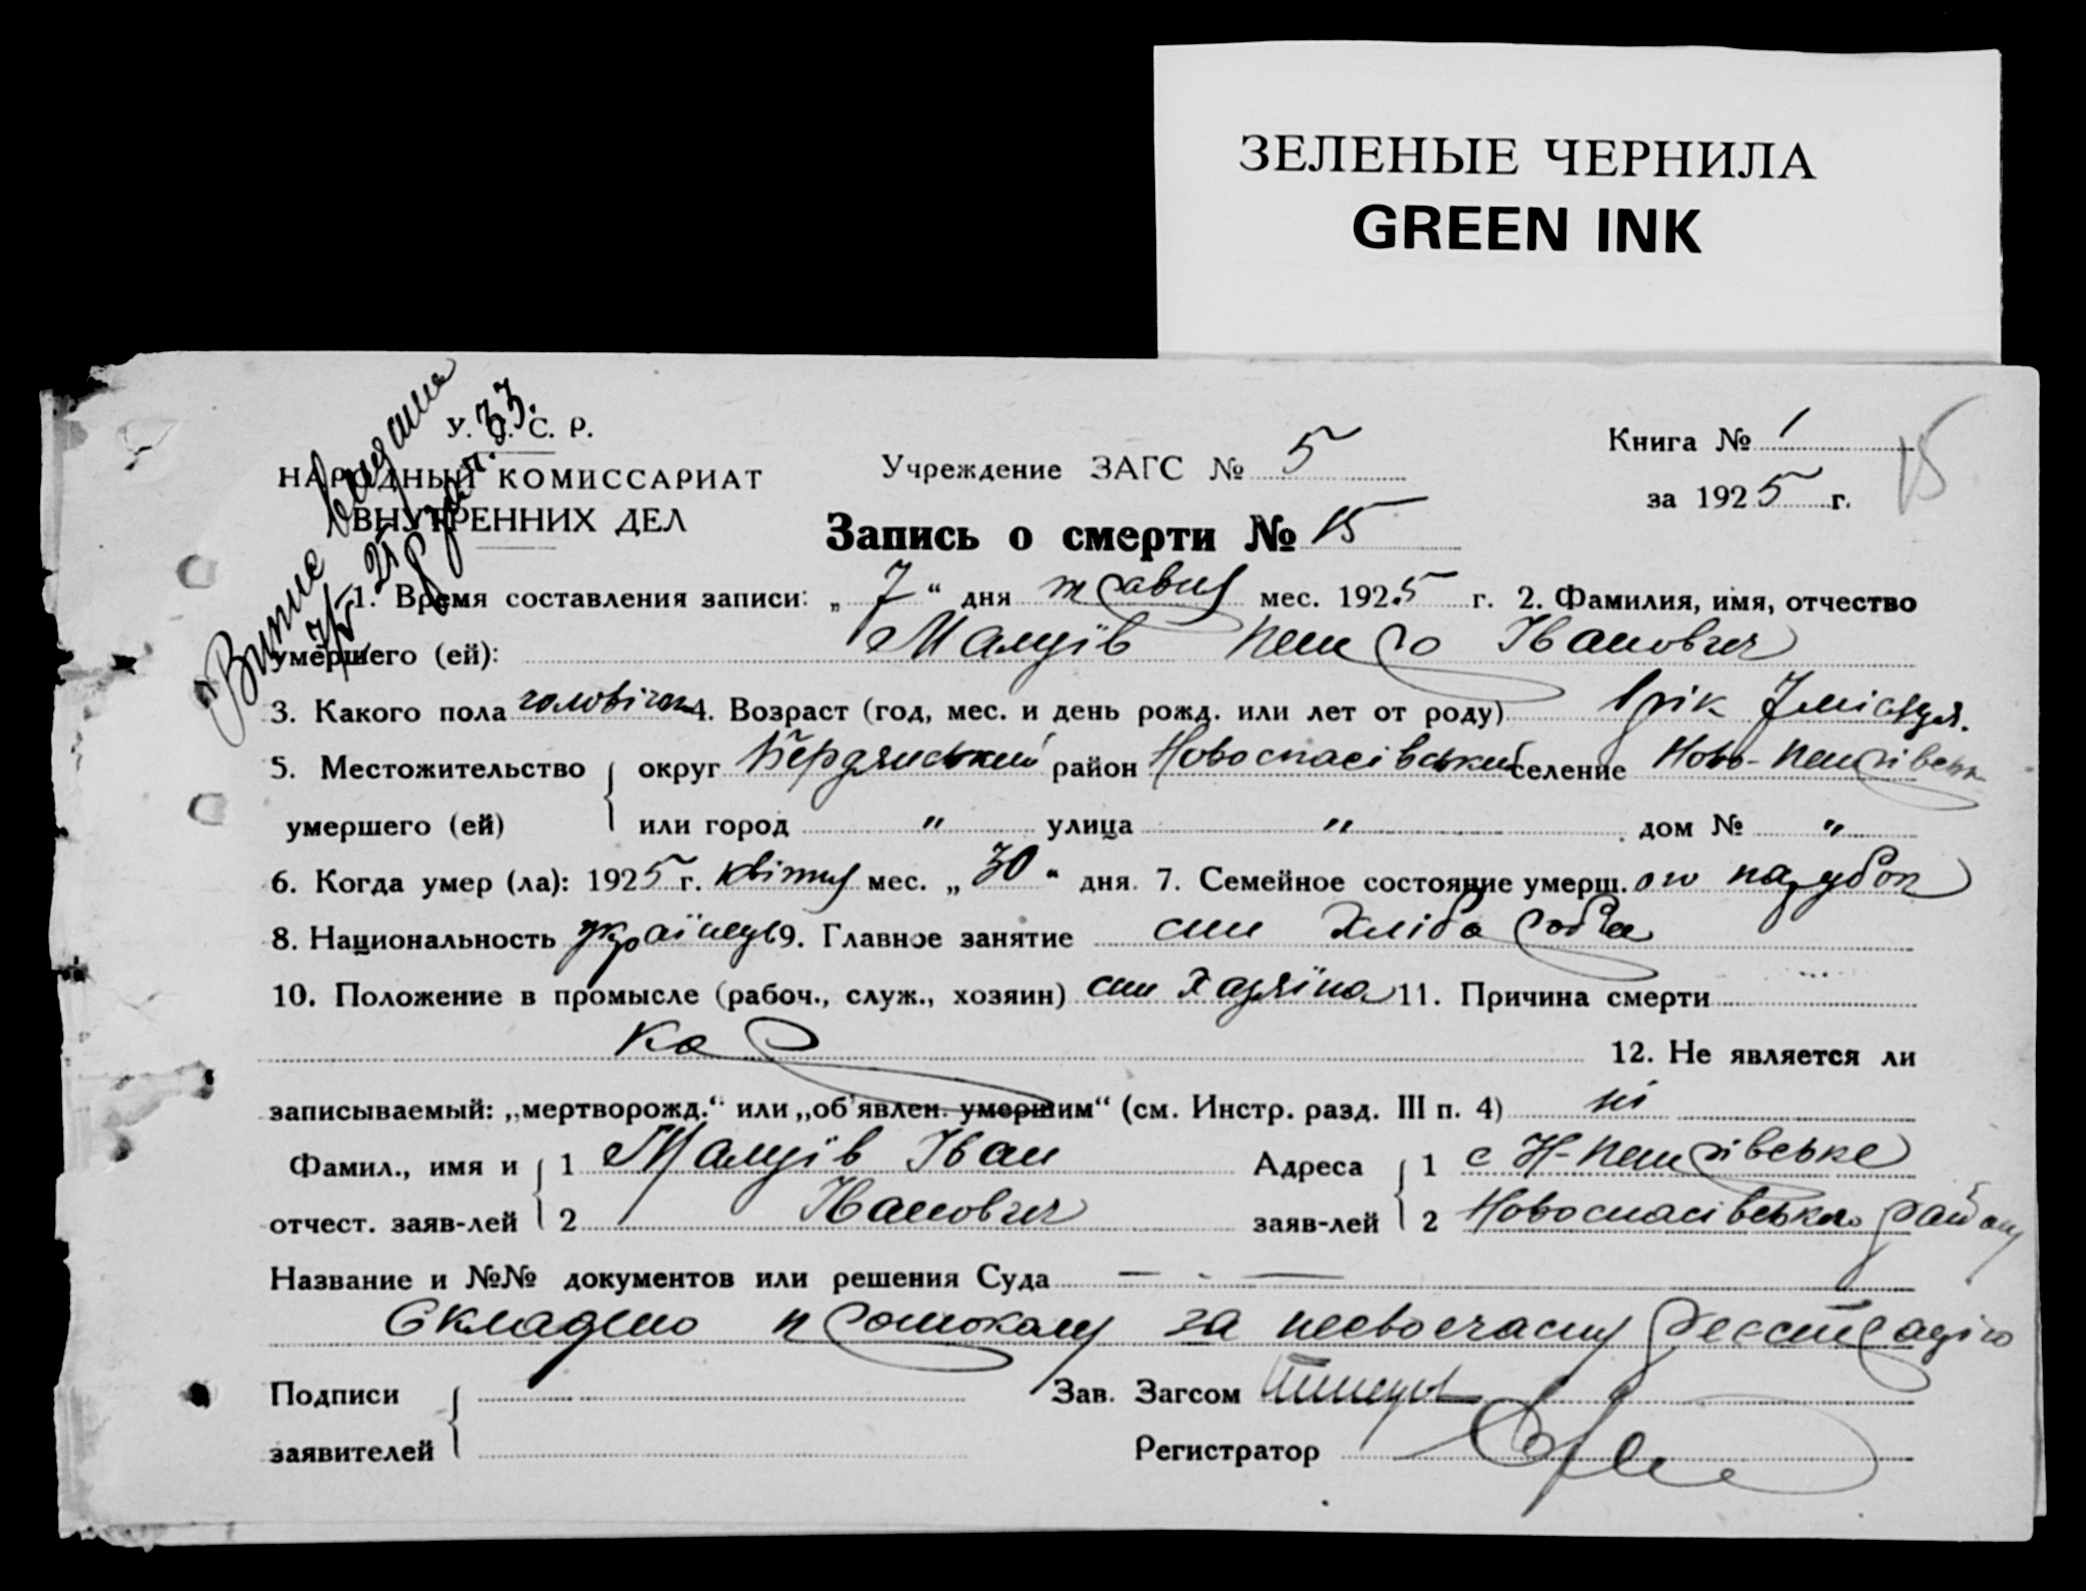 ЗЕЛЕНЫЕ ЧЕРНИЛА
GREEN INK
У. С. С. Р.
НАРОДНЫЙ КОМИССАРИАТ
ВНУТРЕННИХ ДЕЛ
Випис видано
Учреждение ЗАГС № 5
Книга № 1
за 1925 г.
15
Запись о смерти № 15
1. Время составления записи: „7“ дня травня мес. 1925 г. 2. Фамилия, имя, отчество
умершего (ей): Малуїв Петро Іванович
3. Какого пола чоловічог 4. Возраст (год, мес. и день рожд. или лет от роду) 1 рік 7 місяця.
5. Местожительство округ Бердянський район Новоспасівський селение Ново-Петрівськ
умершего (ей) или город " улица " дом № "
6. Когда умер (ла): 1925 г. квітня мес. „30“ дня. 7. Семейное состояние умерш.ого парубок
8. Национальность українець 9. Главное занятие син хлібороба
10. Положение в промысле (рабоч., служ., хозяин) син хазяїна 11. Причина смерти
кор 12. Не является ли
записываемый: „мертворожд.“ или „об'явлен. умершим“ (см. Инстр. разд. III п. 4) ні
Фамил., имя и 1 Малуїв Іван Адреса 1 с Н-Петрівське
отчест. заяв-лей 2 Іванович заяв-лей 2 Новоспасівського району
Название и №№ документов или решения Суда — - —
Складено протокол за несвоєчасну реєстрацію
Подписи Зав. Загсом
заявителей Регистратор